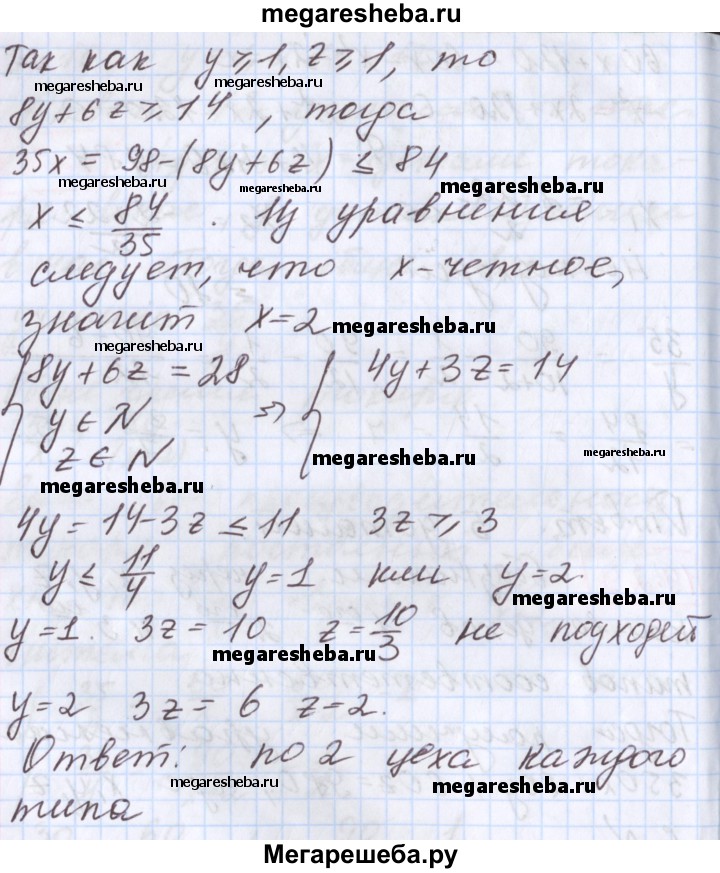 megaresheba.ru
Так как y ⩾ 1, z ⩾ 1, то
megaresheba.ru
megaresheba.ru
8y + 6z ⩾ 14, тогда
35x = 98 - (8y + 6z) ≤ 84
megaresheba.ru
megaresheba.ru
megaresheba.ru
x ≤ 84/35. Из уравнения
следует, что x - четное,
значит x = 2
megaresheba.ru
megaresheba.ru
{ 8y + 6z = 28 ⇒ { 4y + 3z = 14
y ∈ N
z ∈ N
megaresheba.ru
megaresheba.ru
megaresheba.ru
4y = 14 - 3z ≤ 11 3z ⩾ 3
y ≤ 11/4 y = 1 или y = 2.
megaresheba.ru
y = 1. 3z = 10 z = 10/3 не подходит
megaresheba.ru
y = 2 3z = 6 z = 2.
Ответ: по 2 цеха каждого
megaresheba.ru
megaresheba.ru
типа
Мегарешеба.ру